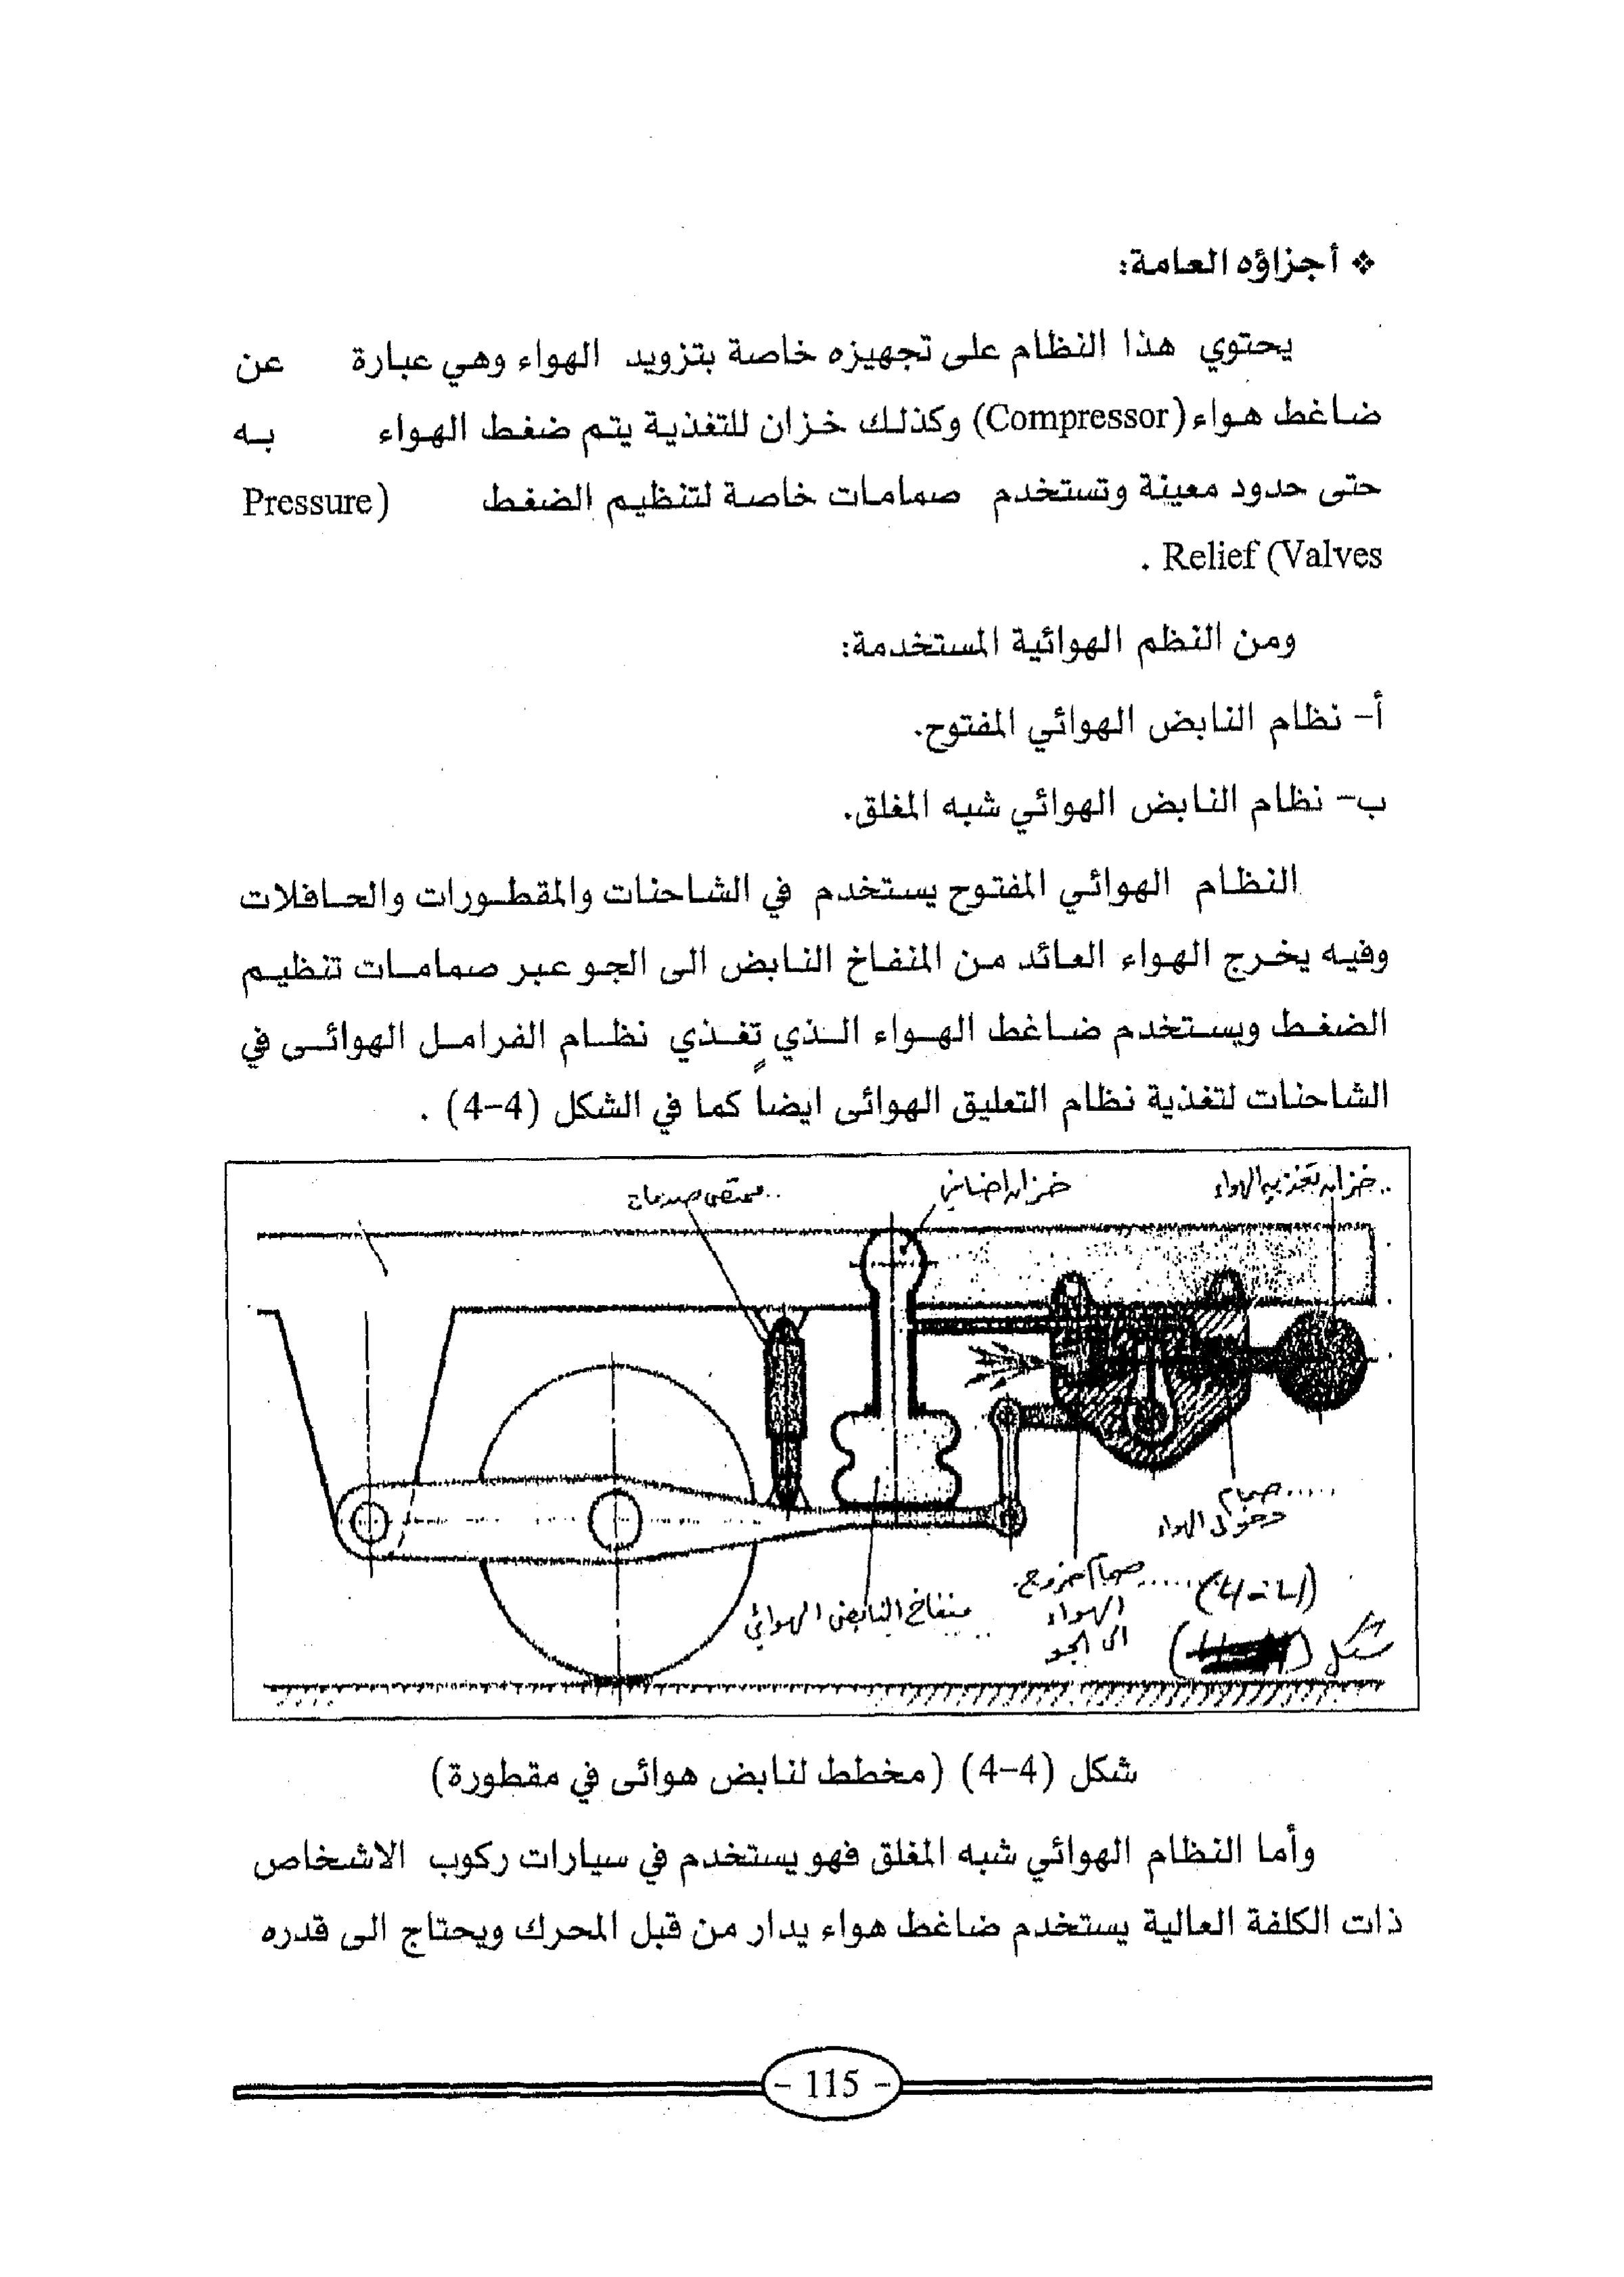 ❖ أجزاؤه العامة:
يحتوي هذا النظام على تجهيزه خاصة بتزويد الهواء وهي عبارة عن
ضاغط هواء (Compressor) وكذلك خزان للتغذية يتم ضغط الهواء به
حتى حدود معينة وتستخدم صمامات خاصة لتنظيم الضغط (Pressure
Relief (Valves .
ومن النظم الهوائية المستخدمة:
أ- نظام النابض الهوائي المفتوح.
ب- نظام النابض الهوائي شبه المغلق.
النظام الهوائي المفتوح يستخدم في الشاحنات والمقطورات والحافلات
وفيه يخرج الهواء العائد من المنفاخ النابض الى الجو عبر صمامات تنظيم
الضغط ويستخدم ضاغط الهواء الذي تغذي نظام الفرامل الهوائى في
الشاحنات لتغذية نظام التعليق الهوائى ايضاً كما في الشكل (4-4) .
خزان تغذية الهواء
خزان اضافي
ممتص صدمات
صمام
دخول الهواء
صمام خروج
الهواء
الى الجو
منفاخ النابض الهوائي
(4-4)
شكل
شكل (4-4) (مخطط لنابض هوائى في مقطورة)
وأما النظام الهوائي شبه المغلق فهو يستخدم في سيارات ركوب الاشخاص
ذات الكلفة العالية يستخدم ضاغط هواء يدار من قبل المحرك ويحتاج الى قدره
- 115 -